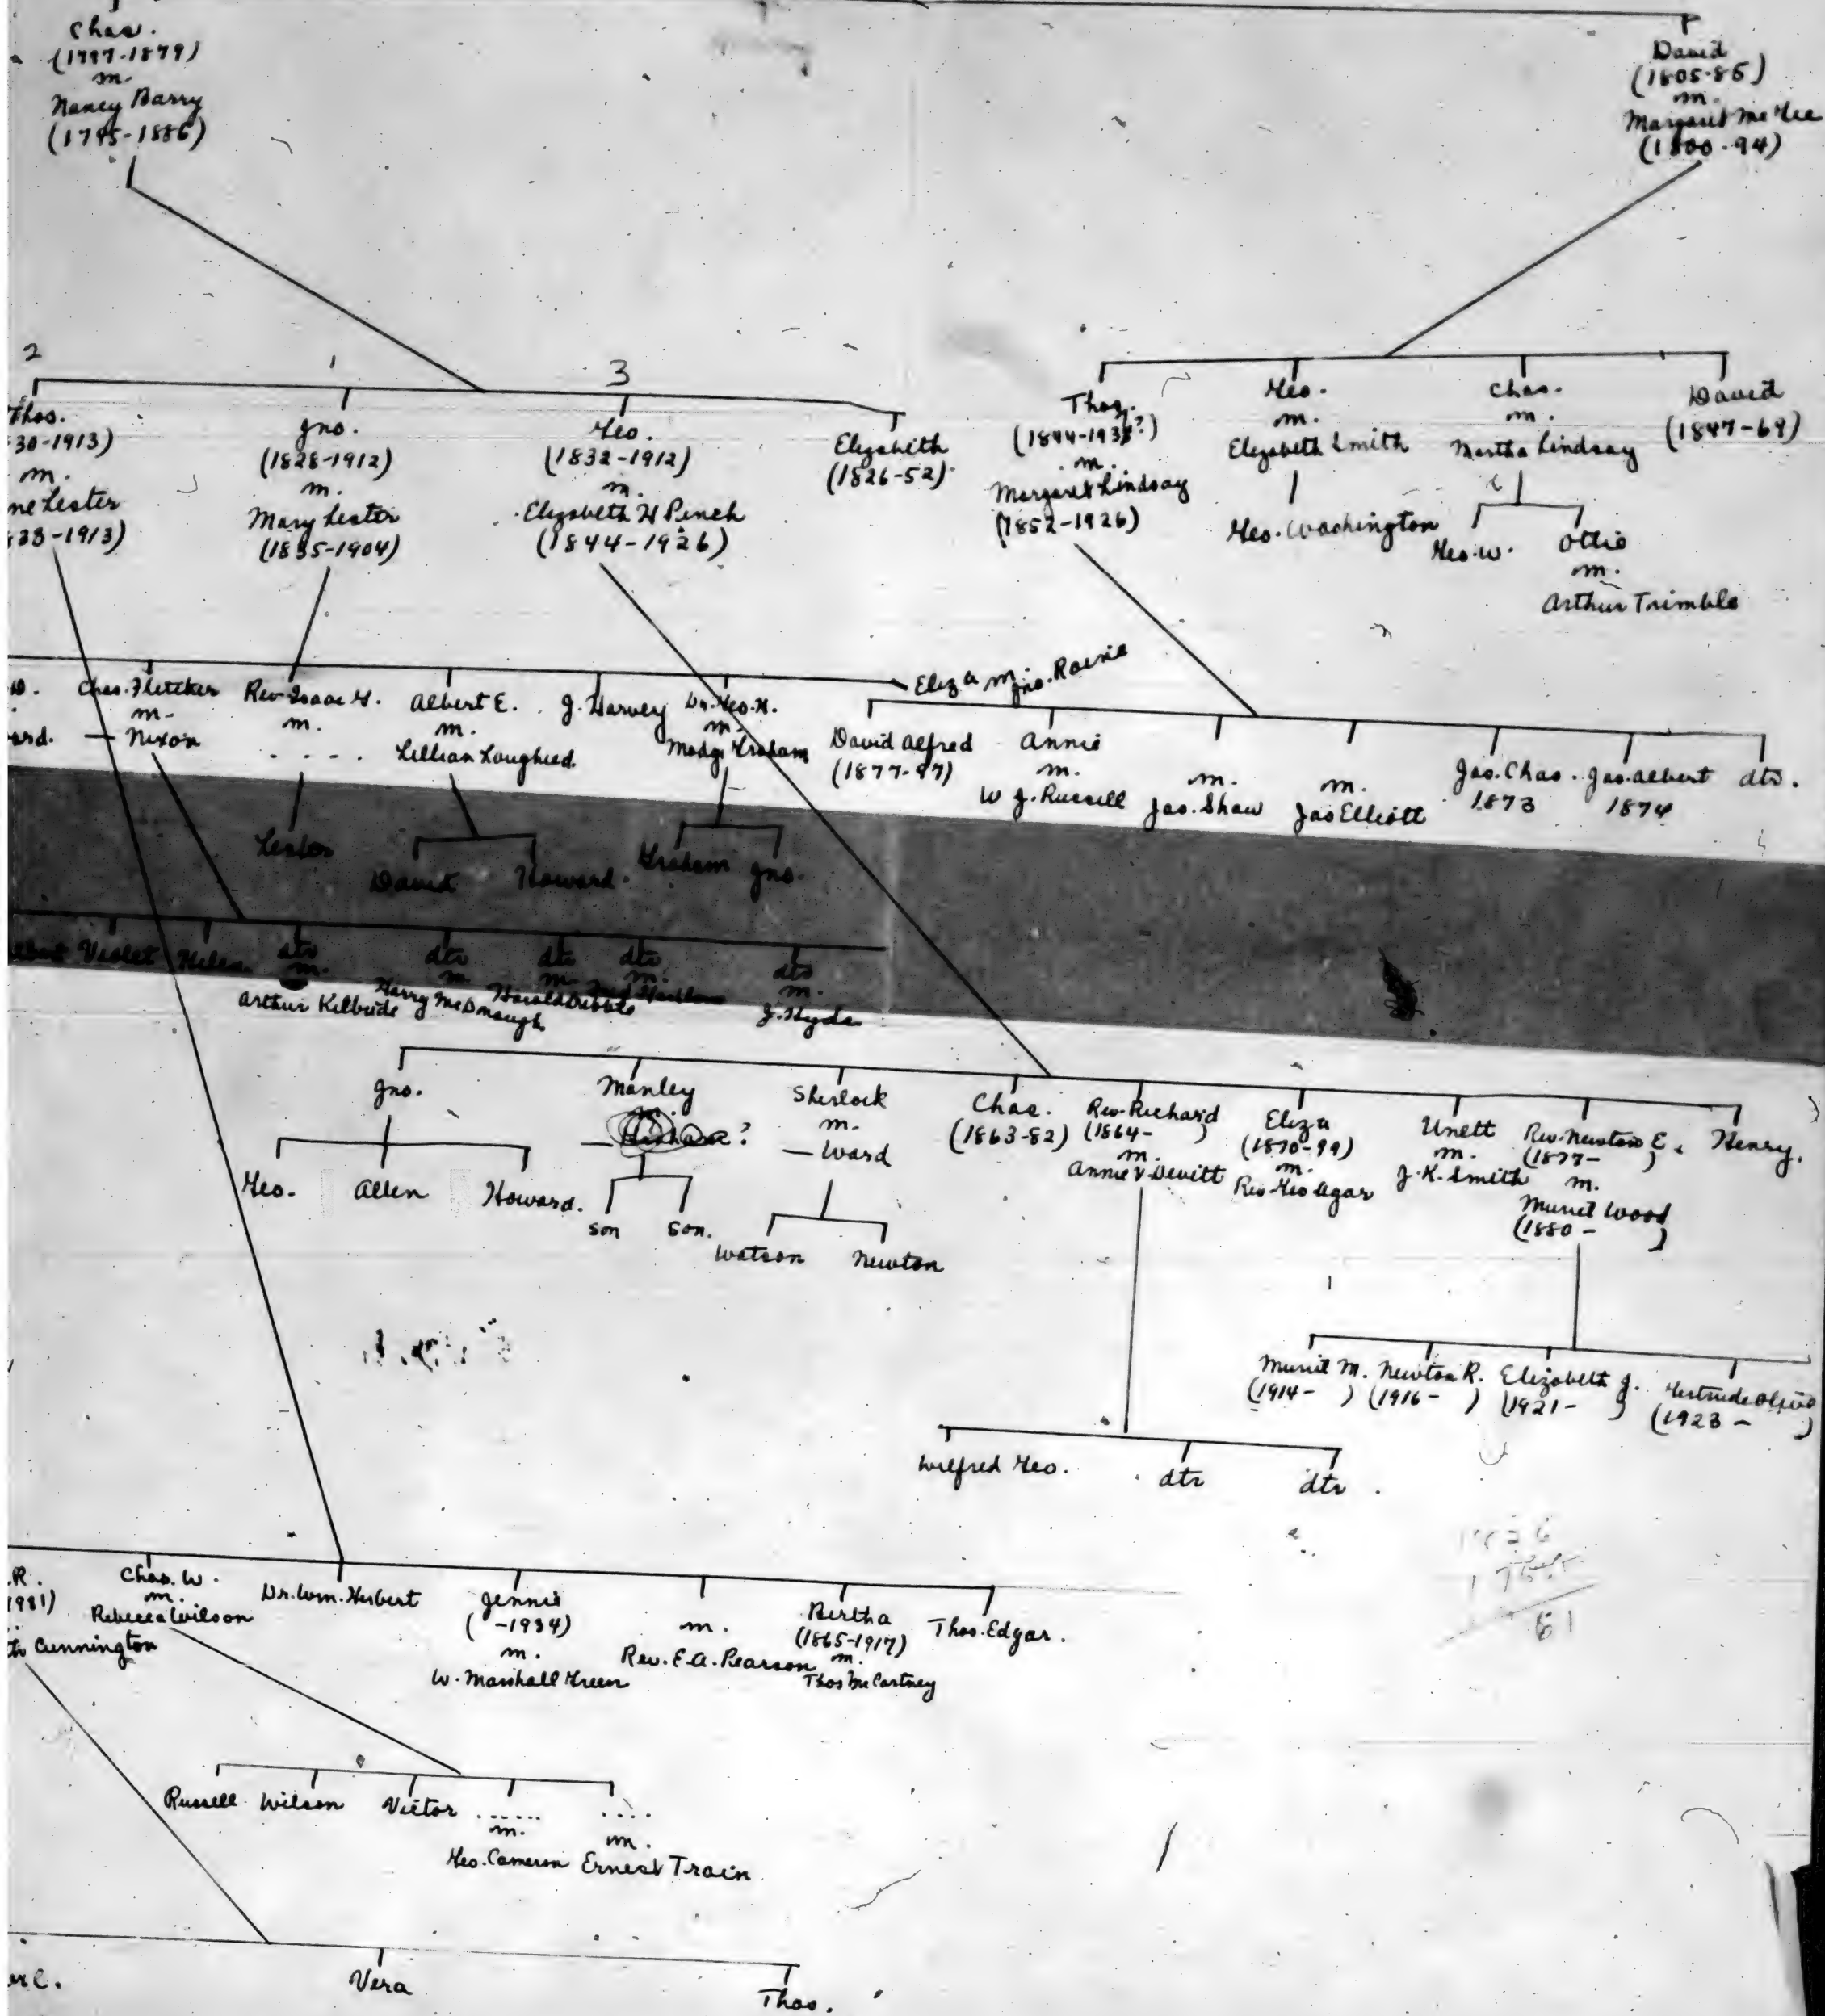 Chas.
(1797-1879)
m.
Nancy Barry
(1795-1886)
David
(1805-85)
m.
Margaret
(1800-94)
2
1
3
Thos.
30-1913)
m.
ne Lester
33-1913)
Jno.
(1828-1912)
m.
Mary Lester
(1835-1904)
Geo.
(1832-1912)
m.
Elizabeth H Pinch
(1844-1926)
Elizabeth
(1826-52)
Thos.
m.
Margaret Lindsay
(1852-1926)
Geo.
m.
Elizabeth Smith
Geo. Washington
Chas.
m.
Martha Lindsay
Geo. W.
Ottie
m.
Arthur Trimble
David
(1847-69)
D.
ard.
Chas. Fletcher
m.
— Nixon
Rev. Isaac G.
m.
. . . .
Albert E.
m.
Lillian Lougheed
J. Harvey
Dr. Geo. H.
m.
Madge Graham
Eliza m Jno.
David Alfred
(1877-97)
Annie
m.
W J. Russell
m.
Jas. Shaw
m.
Jas Elliott
Jas. Chas.
1873
Jas. Albert
1874
dtr.
Lester
David
Howard.
Graham
Jno.
Violet
Helen
dtr
m.
Arthur Kilbride
dtr
m
Harry McDonough
dtr
m.
Harold Dibble
dtr
m.
dtr
m.
J. Hyde
Jno.
Geo.
Allen
Howard.
Manley
m.
?
son
son.
Sherlock
m.
— Ward
Watson
Newton
Chas.
(1863-82)
Rev. Richard
(1864- )
m.
Annie V Devitt
Eliza
(1870-99)
m.
Rev. Geo Agar
Unett
m.
J. K. Smith
Rev. Newton E.
(1877- )
m.
Muriel Wood
(1880 - )
Henry.
Muriel M.
(1914- )
Newton R.
(1916- )
Elizabeth J.
(1921- )
Gertrude Olive
(1923 - )
Wilfred Geo.
dtr
dtr
.R.
1931)
Cunnington
Chas. W.
m.
Rebecca Wilson
Dr. Wm. Herbert
Jennie
( -1934)
m.
W. Marshall Green
m.
Rev. E. A. Pearson
Bertha
(1865-1917)
m.
Thos McCartney
Thos. Edgar.
Russell
Wilson
Victor
......
m.
Geo. Cameron
....
m.
Ernest Train
Vera
Thos.